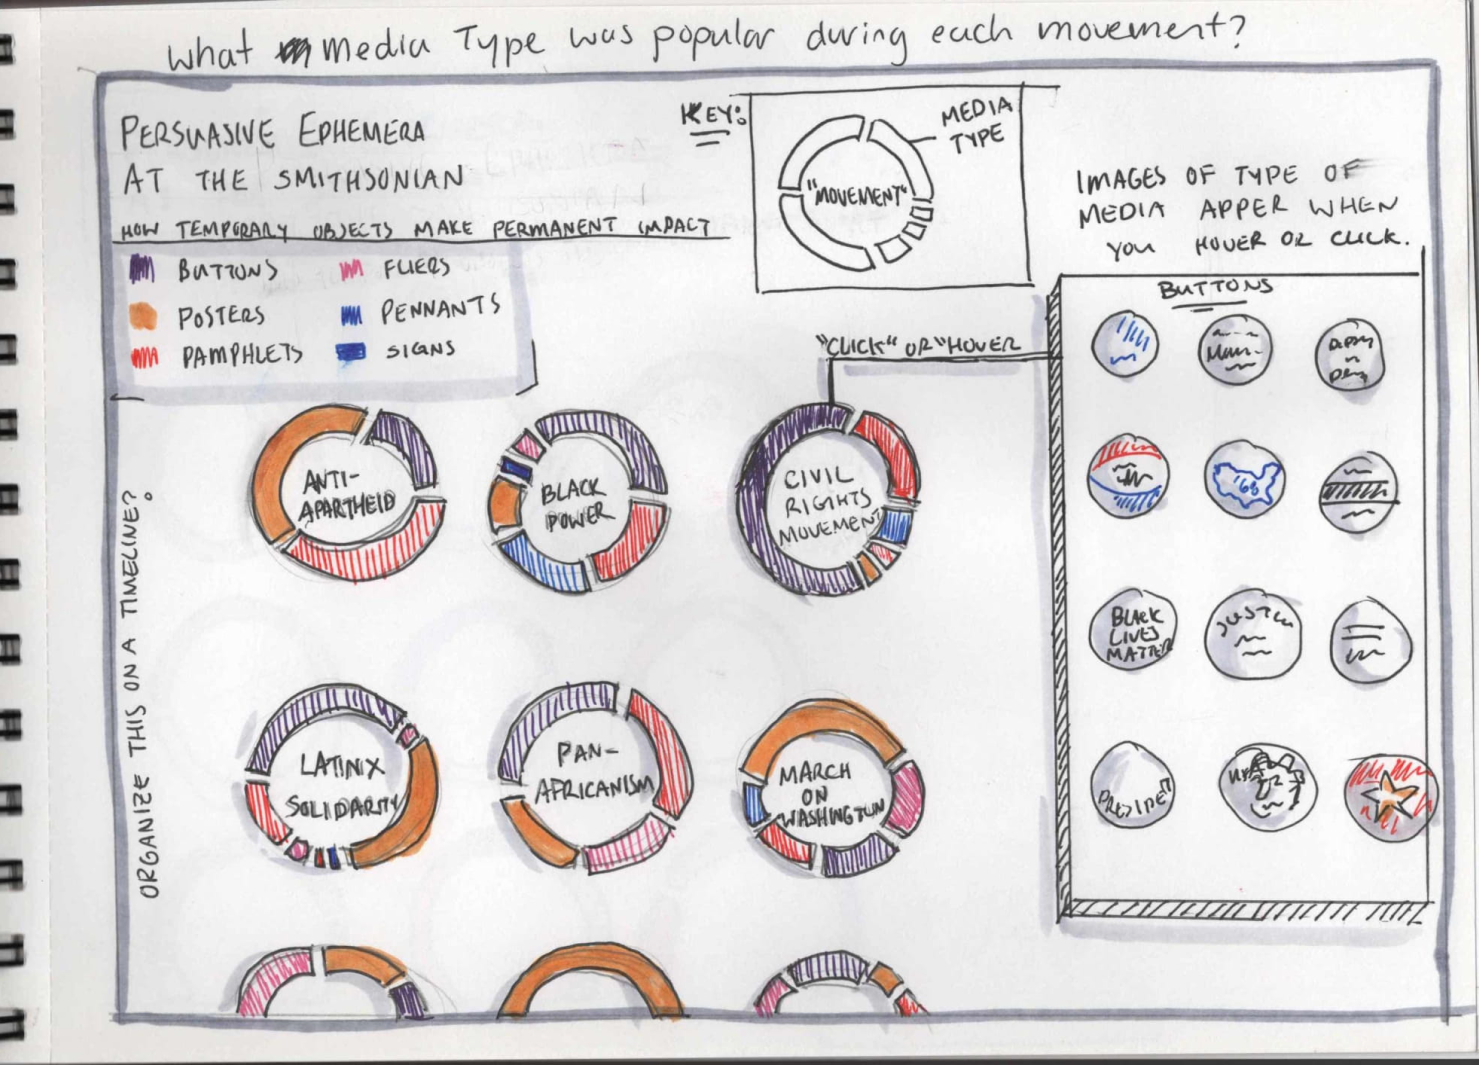 What media Type was popular during each movement?
PERSUASIVE EPHEMERA
AT THE SMITHSONIAN
HOW TEMPORARY OBJECTS MAKE PERMANENT IMPACT
BUTTONS
POSTERS
PAMPHLETS
FLIERS
PENNANTS
SIGNS
KEY:
MEDIA
TYPE
"MOVEMENT"
IMAGES OF TYPE OF
MEDIA APPER WHEN
YOU HOVER OR CLICK.
"CLICK" OR "HOVER
BUTTONS
'68
BLACK
LIVES
MATTER
ORGANIZE THIS ON A TIMELINE?
ANTI-
APARTHEID
BLACK
POWER
CIVIL
RIGHTS
MOVEMENT
LATINX
SOLIDARITY
PAN-
AFRICANISM
MARCH
ON
WASHINGTON